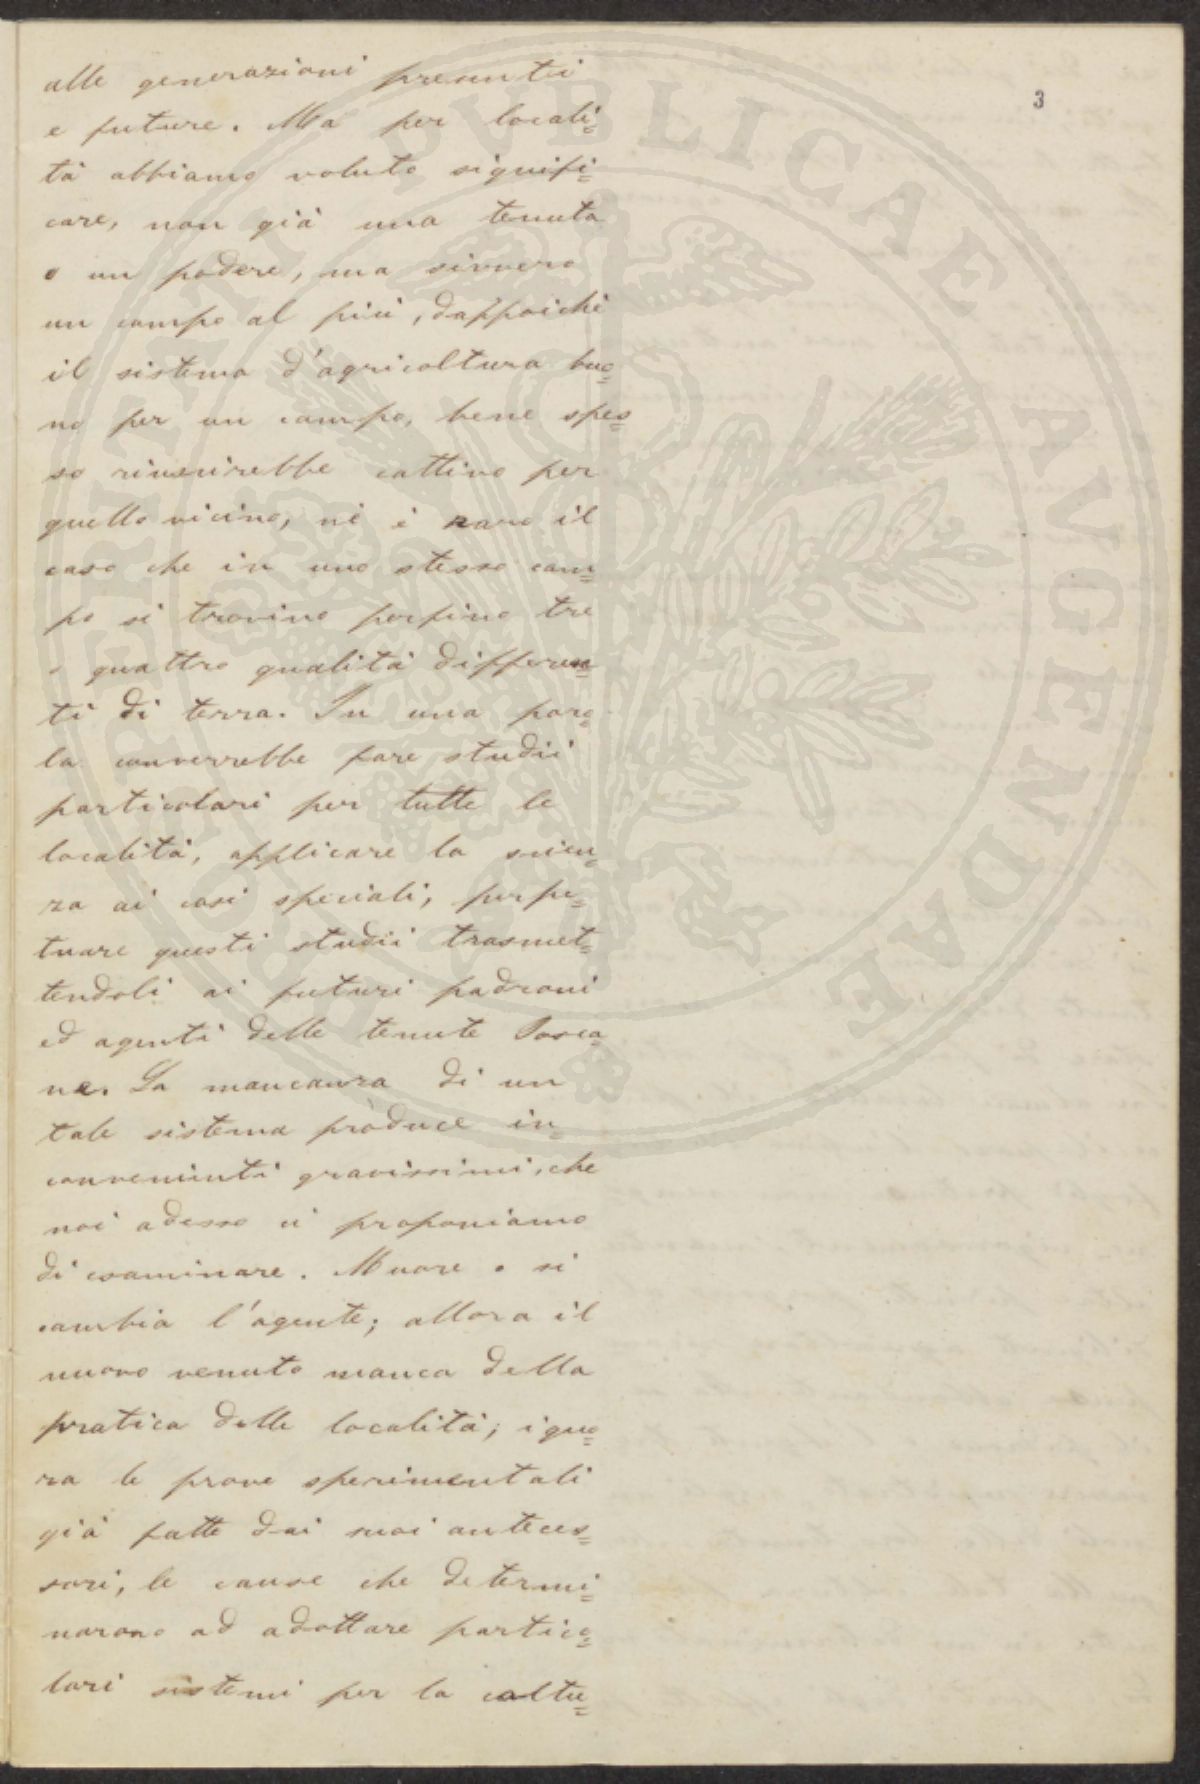 3
alle generazioni presenti
e future. Ma per locali=
tà abbiamo voluto signifi=
care, non già una tenuta
o un podere, ma sivvero
un campo al più, dappoichè
il sistema d'agricoltura buo=
no per un campo, bene spes=
so rinvenirebbe cattivo per
quello vicino, nè è raro il
caso che in uno stesso cam=
po si trovino perfino tre
o quattro qualità differen=
ti di terra. In una paro=
la converrebbe fare studii
particolari per tutte le
località, applicare la scien=
za ai casi speciali, perpe=
tuare questi studii trasmet=
tendoli ai futuri padroni
ed agenti delle tenute Tosca=
ne. La mancanza di un
tale sistema produce in=
convenienti gravissimi, che
noi adesso ci proponiamo
di esaminare. Muore o si
cambia l'agente; allora il
nuovo venuto manca della
pratica delle località; igno=
ra le prove sperimentali
già fatte dai suoi anteces=
sori, le cause che determi=
narono ad adottare partico=
lari sistemi per la coltu=
PVBLICAE AVGENDAE